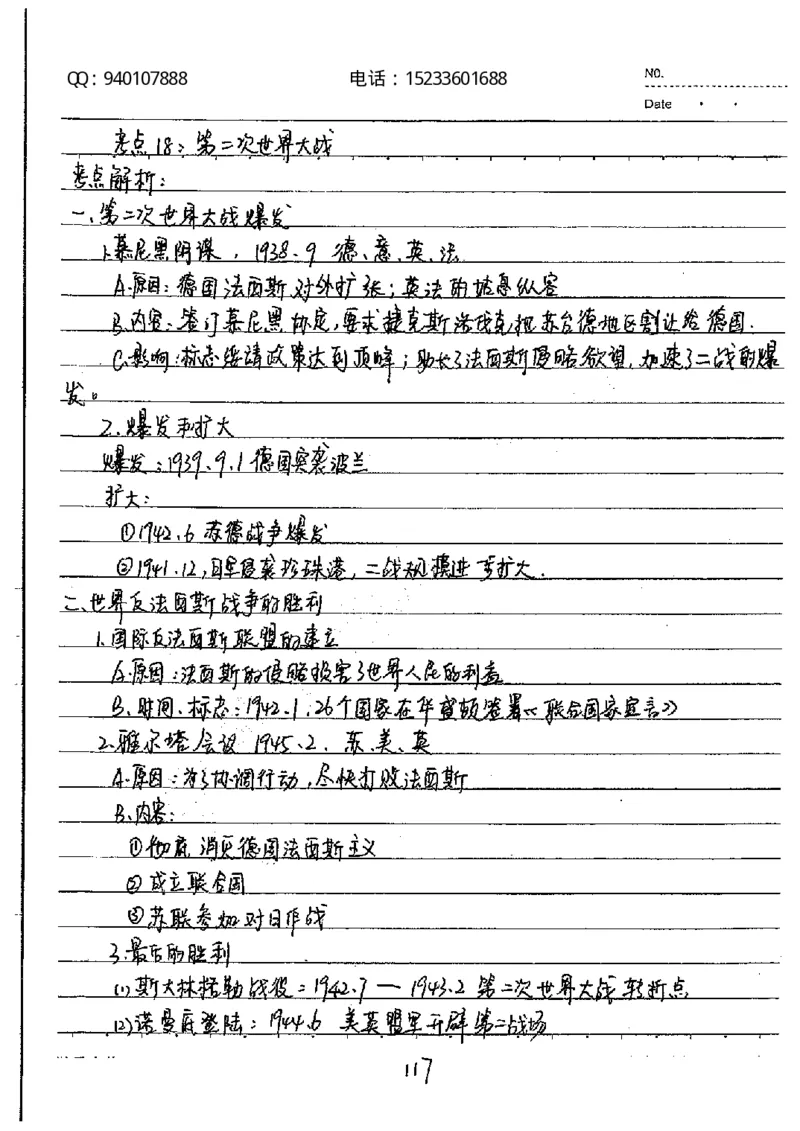 QQ：940107888 电话：15233601688 NO.
Date
考点18：第二次世界大战
考点解析：
一、第二次世界大战爆发
1.慕尼黑阴谋，1938.9 德、意、英、法
A.原因：德国法西斯对外扩张；英法的姑息纵容
B.内容：签订慕尼黑协定，要求捷克斯洛伐克把苏台德地区割让给德国.
C.影响：标志绥靖政策达到顶峰；助长了法西斯侵略欲望，加速了二战的爆
发。
2.爆发和扩大
爆发：1939.9.1德国突袭波兰
扩大：
①1942.6 苏德战争爆发
②1941.12，日军侵袭珍珠港，二战规模进一步扩大.
二、世界反法西斯战争的胜利
1.国际反法西斯联盟的建立
A.原因：法西斯的侵略损害了世界人民的利益
B.时间、标志：1942.1，26个国家在华盛顿签署《联合国家宣言》
2.雅尔塔会议 1945.2. 苏、美、英
A.原因：为了协调行动，尽快打败法西斯
B.内容：
①彻底消灭德国法西斯主义
②成立联合国
③苏联参加对日作战
3.最后的胜利
(1)斯大林格勒战役：1942.7—1943.2 第二次世界大战转折点
(2)诺曼底登陆：1944.6 美英盟军开辟第二战场
117